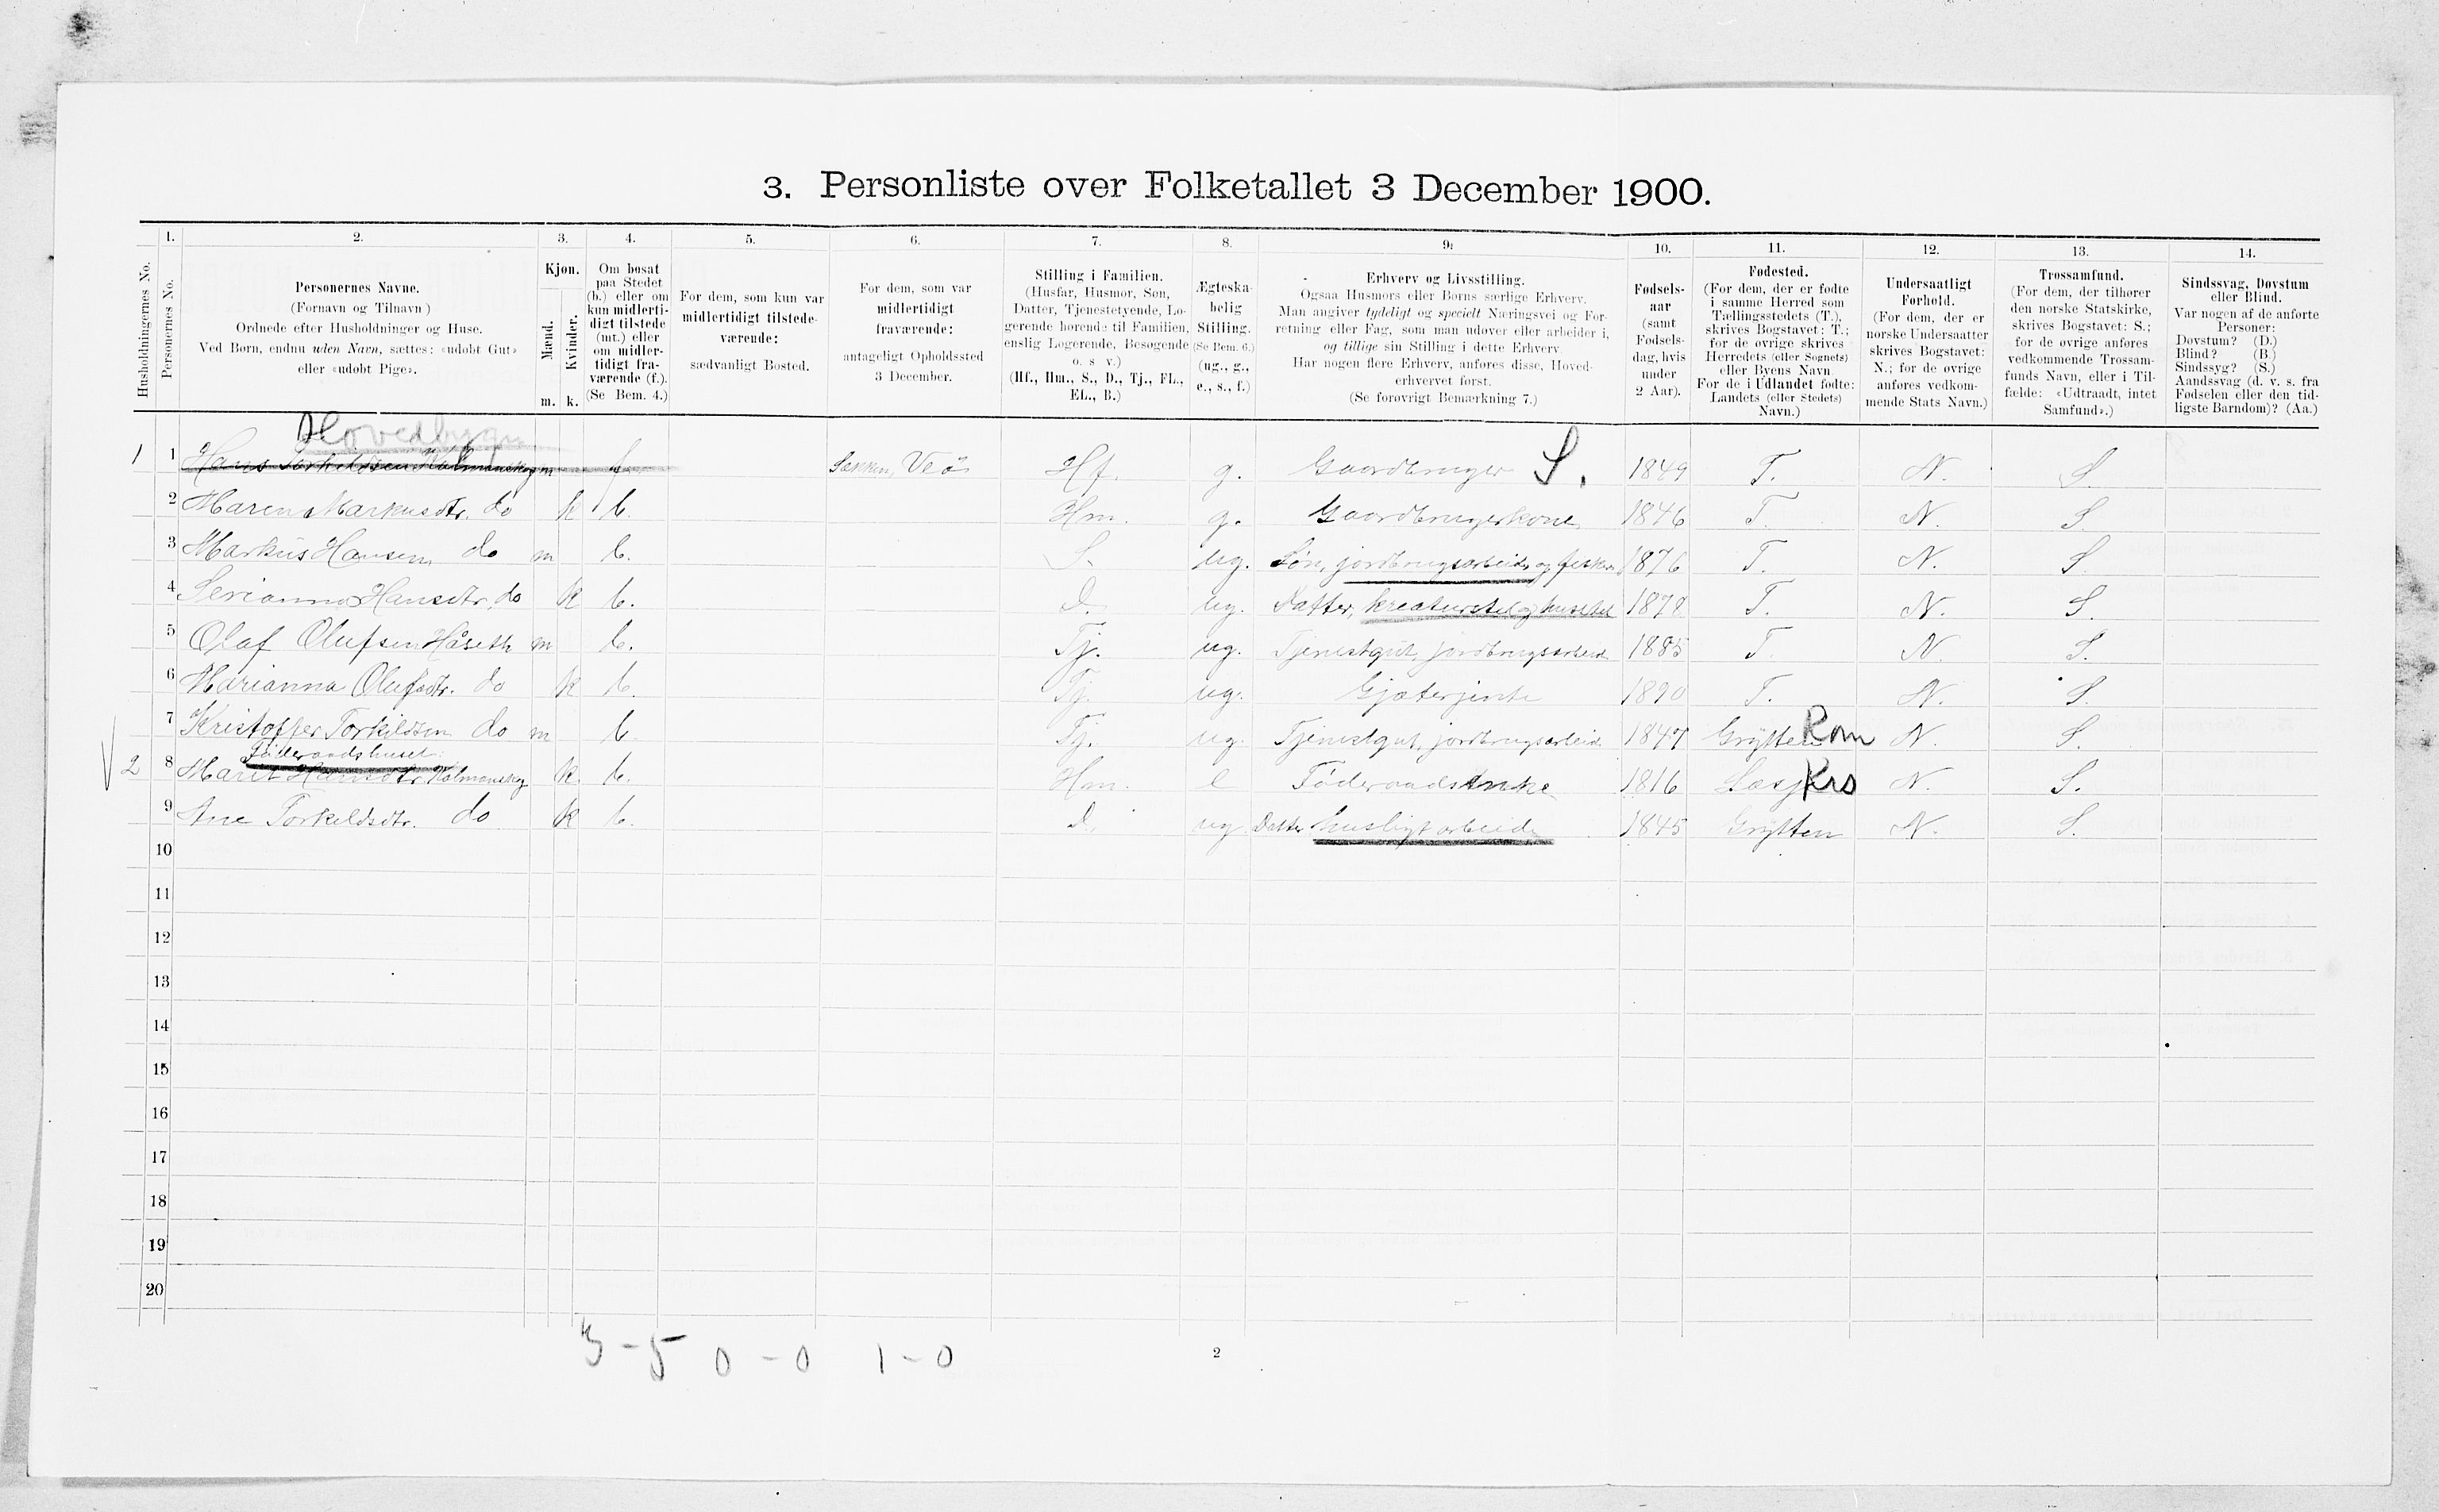 3. Personliste over Folketallet 3 December 1900.
Husholdningernes No.
1. Personernes No.
2. Personernes Navne. (Fornavn og Tilnavn) Ordnede efter Husholdninger og Huse. Ved Børn, endnu uden Navn, sættes: «udobt Gut» eller «udobt Pige».
3. Kjøn. Mænd. m. Kvinder. k.
4. Om bosat paa Stedet (b.) eller om kun midlertidigt tilstede (mt.) eller om midlertidigt fraværende (f.). (Se Bem. 4.)
5. For dem, som kun var midlertidigt tilstedeværende: sædvanligt Bosted.
6. For dem, som var midlertidigt fraværende: antageligt Opholdssted 3 December.
7. Stilling i Familien. (Husfar, Husmor, Søn, Datter, Tjenestetyende, Logerende hørende til Familien, enslig Logerende, Besøgende o. s v.) (Hf., Hm., S., D., Tj., FL., EL., B.)
8. Ægteskabelig Stilling. (Se Bem. 6.) (ug., g., e., s., f.)
9. Erhverv og Livsstilling. Ogsaa Husmors eller Børns særlige Erhverv. Man angiver tydeligt og specielt Næringsvei og Forretning eller Fag, som man udøver eller arbeider i, og tillige sin Stilling i dette Erhverv. Har nogen flere Erhverv, anføres disse, Hovederhvervet først. (Se forøvrigt Bemærkning 7.)
10. Fødselsaar (samt Fødselsdag, hvis under 2 Aar).
11. Fødested. (For dem, der er fødte i samme Herred som Tællingsstedets (T.), skrives Bogstavet: T.; for de øvrige skrives Herredets (eller Sognets) eller Byens Navn For de i Udlandet fødte: Landets (eller Stedets) Navn.)
12. Undersaatligt Forhold. (For dem, der er norske Undersaatter skrives Bogstavet: N.; for de øvrige anføres vedkommende Stats Navn.)
13. Trossamfund. (For dem, der tilhører den norske Statskirke, skrives Bogstavet: S.; for de øvrige anføres vedkommende Trossamfunds Navn, eller i Tilfælde: «Udtraadt, intet Samfund».)
14. Sindssvag, Døvstum eller Blind. Var nogen af de anførte Personer: Døvstum? (D.) Blind? (B.) Sindssyg? (S.) Aandssvag (d. v. s. fra Fødselen eller den tidligste Barndom)? (Aa.)
Hovedbygn
1 1 Hans Torkildsen Kalmanskog m f Sekken, Veö Hf. g. Gaardbruger S. 1849 T. N. S.
2 Maren Markusdtr. do k b. Hm. g. Gaardbrugerkone 1846 T. N. S.
3 Markus Hansen do m b. S. ug. Søn, jordbrugsarbeide og fisker 1876 T. N. S.
4 Serianna Hansdtr. do k b. D. ug. Datter, kreaturstel og husstel 1878 T. N. S.
5 Olaf Olufsen Håseth m b. Tj. ug. Tjenestgut, jordbrugsarbeid 1885 T. N. S.
6 Marianna Olufsdtr. do k b. Tj. ug. Gjæterjente 1890 T. N. S.
7 Kristoffer Torkildsen do m b. Tj. ug. Tjenestgut, jordbrugsarbeid 1847 Grytten Rom N. S.
Föderaadshuset
2 8 Marit Hansdtr. Kalmanskog k. b. Hm. e Föderaadsenke 1816 Læsj Krs N. S.
9 Ane Torkildsdtr. do k b. D. ug. Datter husligt arbeide 1845 Grytten N. S.
10
11
12
13
14
15
16
17
18
19
20
3 - 5 0 - 0 1 - 0
2